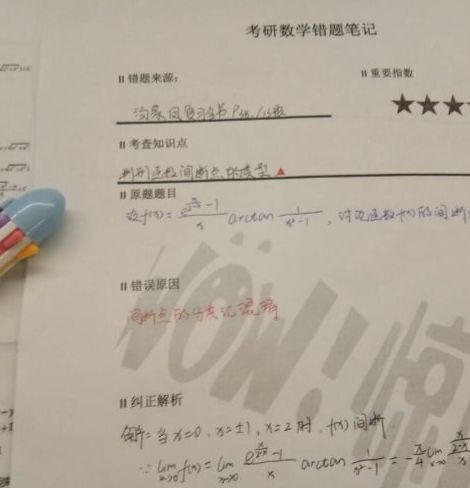 考研数学错题笔记
错题来源：
重要指数
汤家凤复习全书 P
考查知识点
判别函数间断点的类型
原题题目
设f(x)= (e^{x/(2-x)}-1)/x arctan 1/(x²-1)，讨论函数f(x)的间断
错误原因
间断点的分类记混
纠正解析
解：当x=0，x=±1，x=2时，f(x)间断
∵ lim_{x→0} f(x) = lim_{x→0} (e^{x/(2-x)}-1)/x arctan 1/(x²-1) = -π/4 lim_{x→0} x/(2-x)/x
WOW!